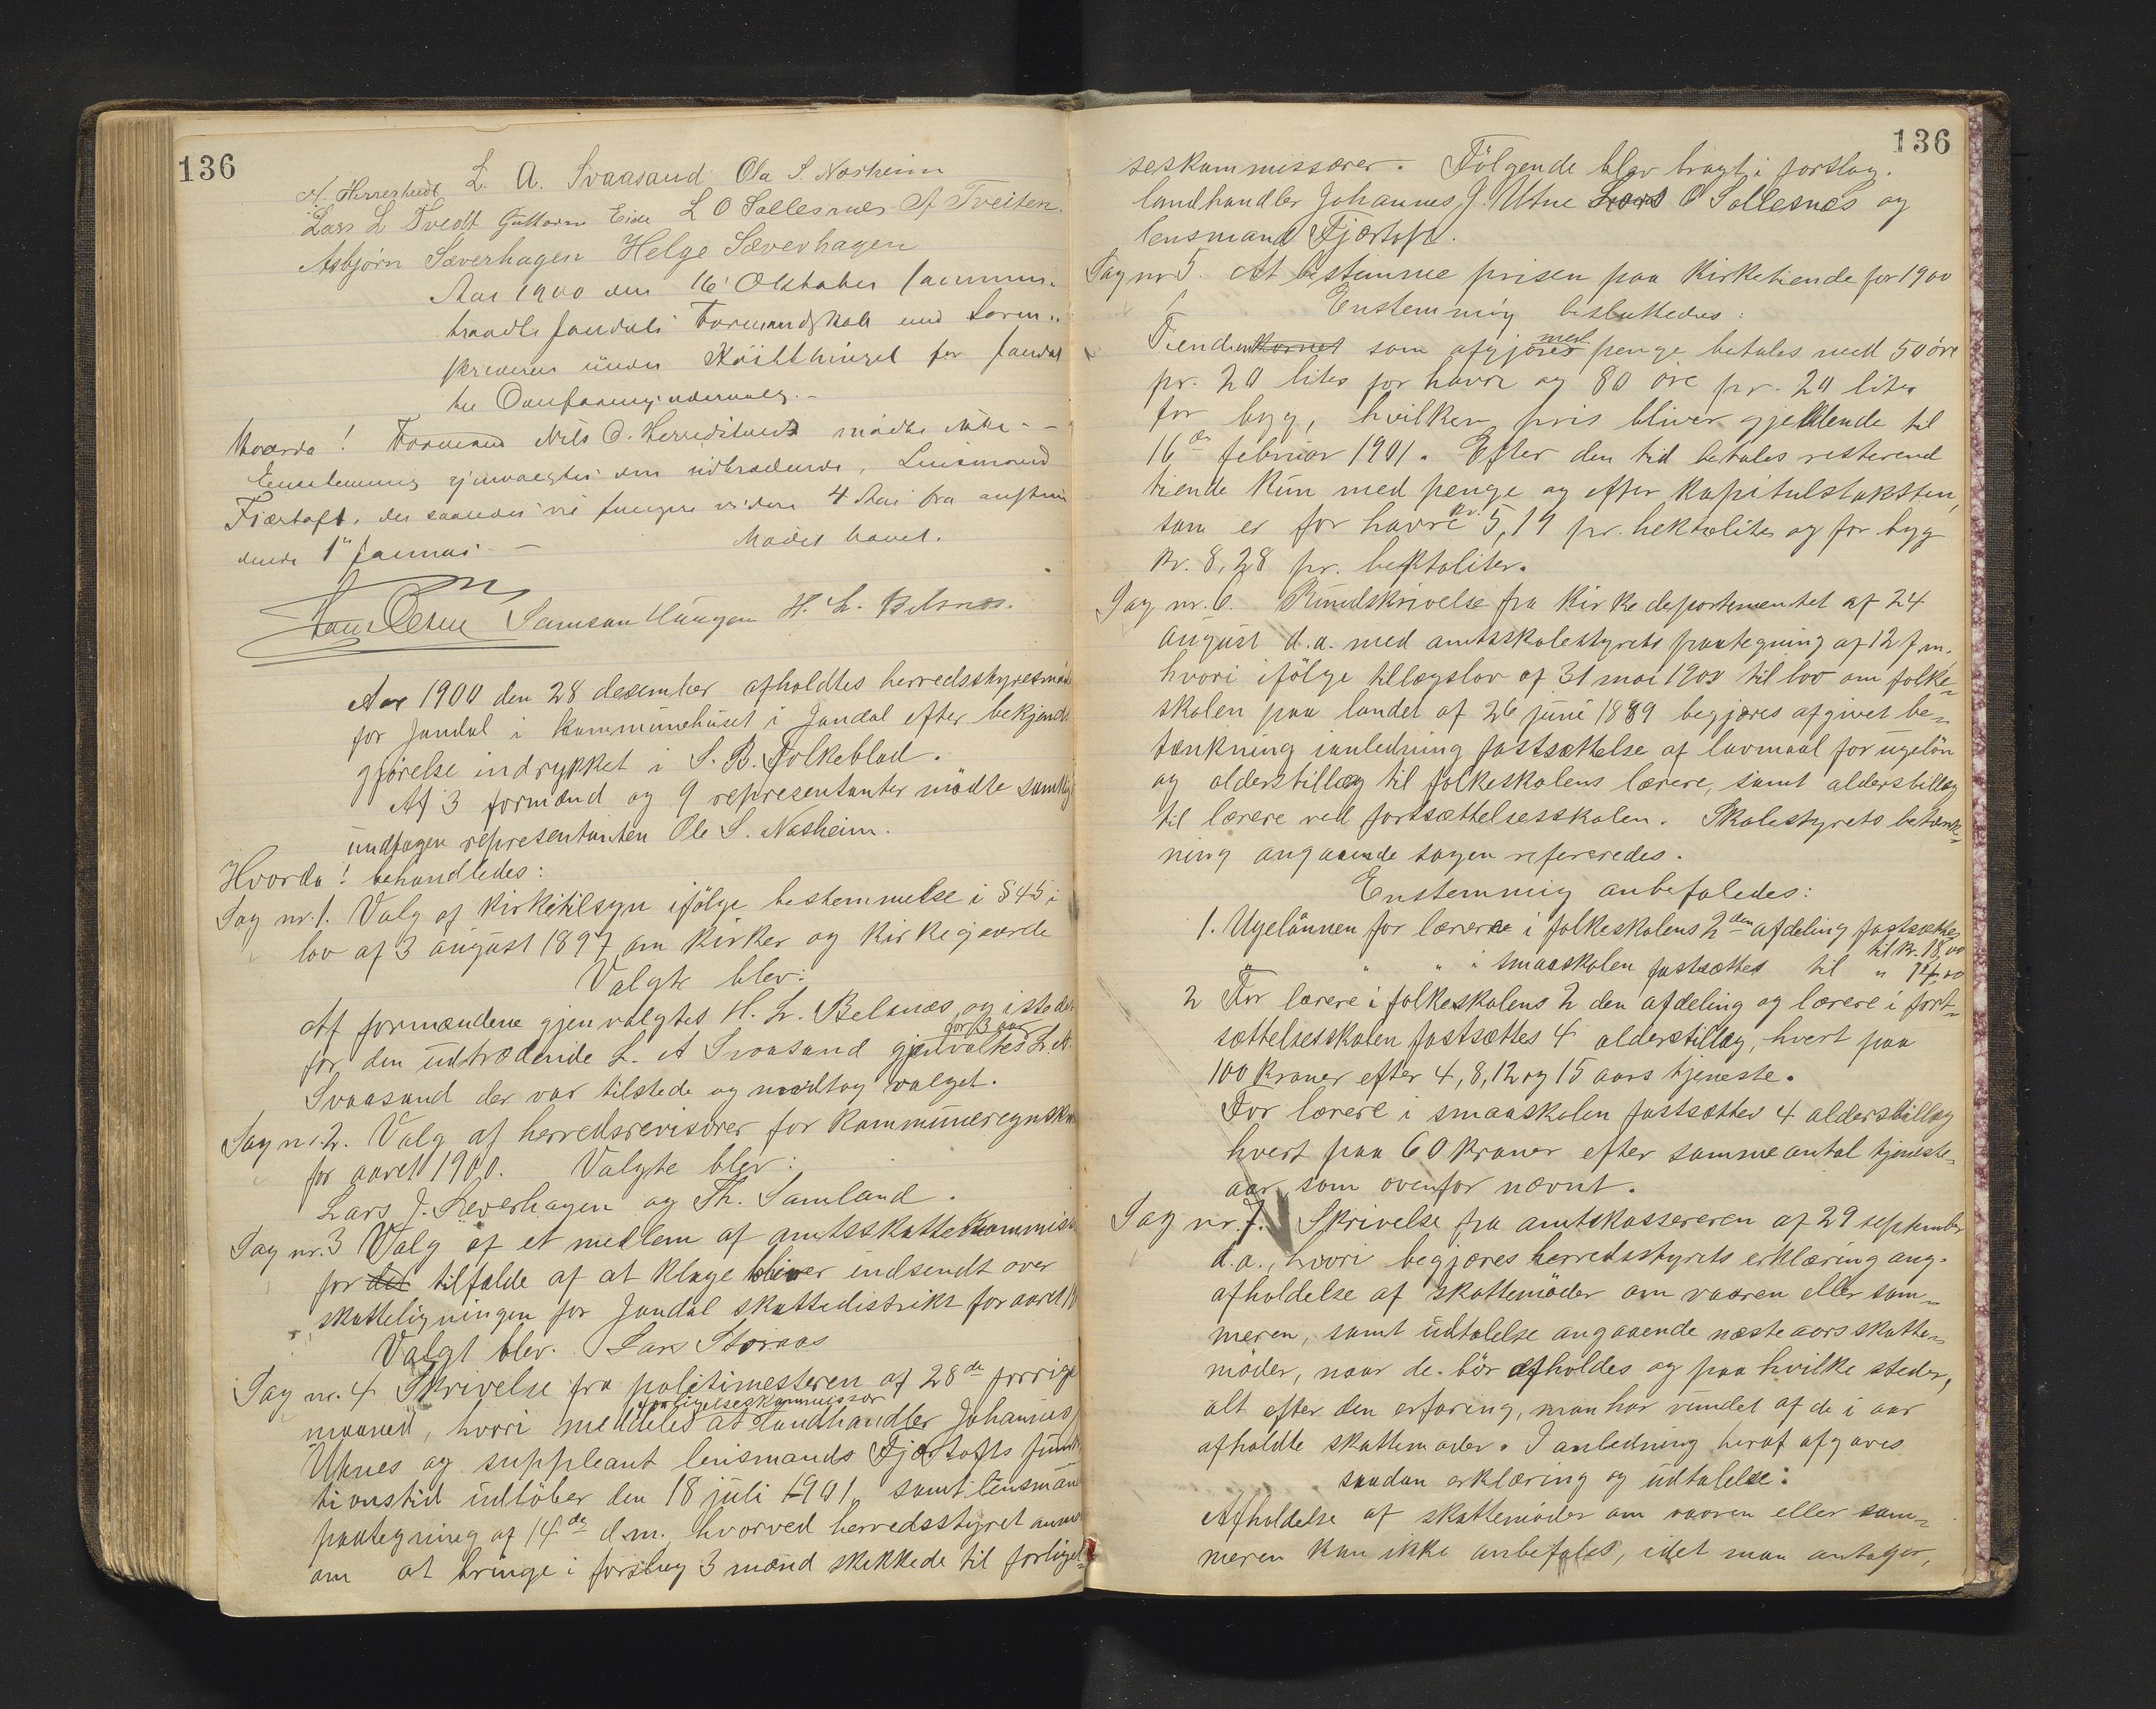 136
N. Herreskudt L. A. Svaasand Ola S. Næsheim
Lars L Tvedt Guttorm Eide L O Sollesnes A Tveiten.
Asbjørn Sæverhagen Helge Sæverhagen
Aar 1900 den 16' Oktober sammen-
traadte Jondals Formandskab med Soren-
skriveren under Høstthinget for Jondal
til
Hvorda! Formand Nils O. mødte ikke -
Enstemmig gjenvalgtes den udtrædende, Lensmand
Fjærtoft, der saaledes vil fungere videre 4 Aar fra anstun
dende 1ste Januar - Mødet hævet.
Samson Haugen H. L. Belsnæs.
Aar 1900 den 28 desember afholdtes herredsstyresmøde
for Jondal i kommunehuset i Jondal efter bekjendt
gjørelse indrykket i S. B. Folkeblad.
Af 3 formænd og 9 representanter mødte samtlige
undtagen representanten Ole S. Næsheim.
Hvorda! behandledes:
Sag nr. 1. Valg af kirketilsyn ifølge bestemmelse i § 45 i
lov af 3 august 1897 om kirker og kirkegaarde
Valgte blev:
Af formændene gjenvalgtes H. L. Belsnæs og istedet
for 3 aar
for den udtrædende L. A Svaasand gjenvaltes L. A.
Svaasand der var tilstede og modtog valget.
Sag nr. 2. Valg af herredsrevisorer for kommuneregnskab
for aaret 1900. Valgte blev:
Lars J. Sæverhagen og Th. Samland.
Sag nr. 3 Valg af et medlem af amtsskattekommis
for det tilfælde af at klage bliver indsendt over
skatteligningen for Jondal skattedistrikt for aaret 19
Valgt blev. Lars Storaas
Sag nr. 4 Skrivelse fra politimesteren af 28de forrige
forligelseskommissær
maaned, hvori meddeles at landhandler Johannes
Utnes og suppleant lensmands Fjærtofts funk
tionstid udløber den 18 juli 1901, samt lensmand
paategning af 14de d.m. hvorved herredsstyret anmo
om at bringe i forslag 3 mænd skikkede til forligel-
136
seskommissærer. Følgende blev bragt i forslag.
landhandler Johannes J. Utne Lars O Sollesnæs og
lensmand Fjærtoft.
Sag nr 5. At bestemme prisen paa kirketiende for 1900
Enstemmig besluttedes:
med
Tiendenkornet som afgjøres penge betales med 50 øre
pr. 20 liter for havre og 80 øre pr. 20 liter
for byg, hvilken pris bliver gjeldende til
16de februar 1901. Efter den tid betales resterend
tiende kun med penge og efter kapitulstaksten,
som er for havre kr. 5,19 pr. hektoliter og for byg
kr. 8,28 pr. hektoliter.
Sag nr. 6. Rundskrivelse fra kirkedepartementet af 24
august d.a. med amtsskolestyrets paategning af 12 f.m.
hvori ifølge tillægslov af 31 mai 1900 til lov om folke-
skolen paa landet af 26 juni 1889 begjæres afgivet be-
tænkning ianledning fastsættelse af lavmaal for ugeløn
og alderstillæg til folkeskolens lærere, samt alderstillæg
til lærere ved fortsættelsesskolen. Skolestyrets betænk-
ning angaaende sagen refereredes.
Enstemmig anbefaledes:
1. Ugelønnen for lærerne i folkeskolens 2den afdeling fastsættes
til kr. 18,00
" " " i smaaskolen fastsættes til " 14,00
2 For lærere i folkeskolens 2 den afdeling og lærere i fort-
sættelsesskolen fastsættes 4 alderstillæg, hvert paa
100 kroner efter 4, 8, 12 og 15 aars tjeneste.
For lærere i smaaskolen fastsættes 4 alderstillæg
hvert paa 60 kroner efter samme antal tjeneste-
aar som ovenfor nævnt.
Sag nr. 7. Skrivelse fra amtskassereren af 29 september
d.a., hvori begjæres herredsstyrets erklæring ang.
afholdelse af skattemøder om vaaren eller som-
meren, samt udtalelse angaaende næste aars skatte-
møder, naar de bør afholdes og paa hvilke steder,
alt efter den erfaring, man har vundet af de i aar
afholdte skattemøder. I anledning heraf afgaves
saadan erklæring og udtalelse:
Afholdelse af skattemøder om vaaren eller som-
meren kan ikke anbefales, idet man antager,